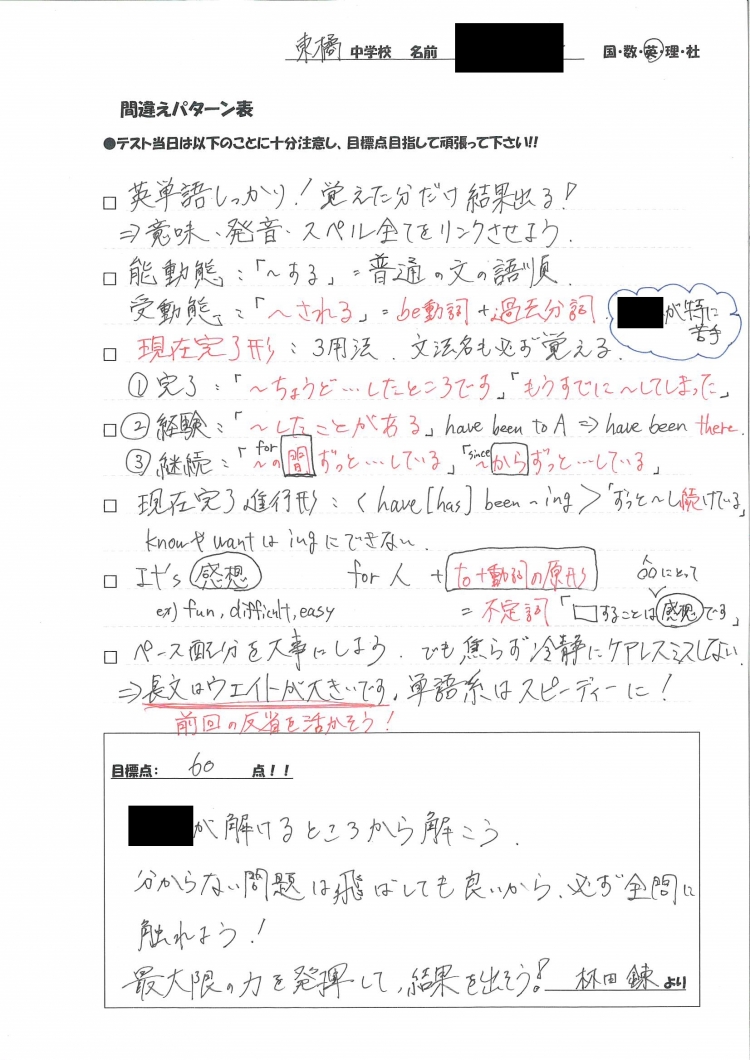 東橘 中学校 名前 国・数・英・理・社
間違えパターン表
●テスト当日は以下のことに十分注意し、目標点目指して頑張って下さい!!
□ 英単語しっかり!覚えた分だけ結果出る!
⇒意味、発音、スペル全てをリンクさせよう.
□ 能動態:「〜する」=普通の文の語順.
受動態:「〜される」=be動詞+過去分詞.
が特に苦手
□ 現在完了形:3用法.文法名も必ず覚える.
①完了:「〜ちょうど…したところです」「もうすでに〜してしまった」
□ ②経験:「〜したことがある」have been to A ⇒ have been there.
③継続:「for 〜の間ずっと…している」「since 〜からずっと…している」
□ 現在完了進行形:<have[has] been 〜ing>「ずっと〜し続けている」
knowやwantはingにできない.
□ It's 感想 for 人 + to+動詞の原形 人にとって
ex) fun, difficult, easy =不定詞「□することは感想です」
□ ペース配分を大事にしよう.でも焦らず冷静にケアレスミスしない.
⇒長文はウエイトが大きいです.単語系はスピーディーに!
前回の反省を活かそう!
目標点: 60 点!!
が解けるところから解こう.
分からない問題は飛ばしても良いから、必ず全問に
触れよう!
最大限の力を発揮して、結果を出そう! 林田錬 より